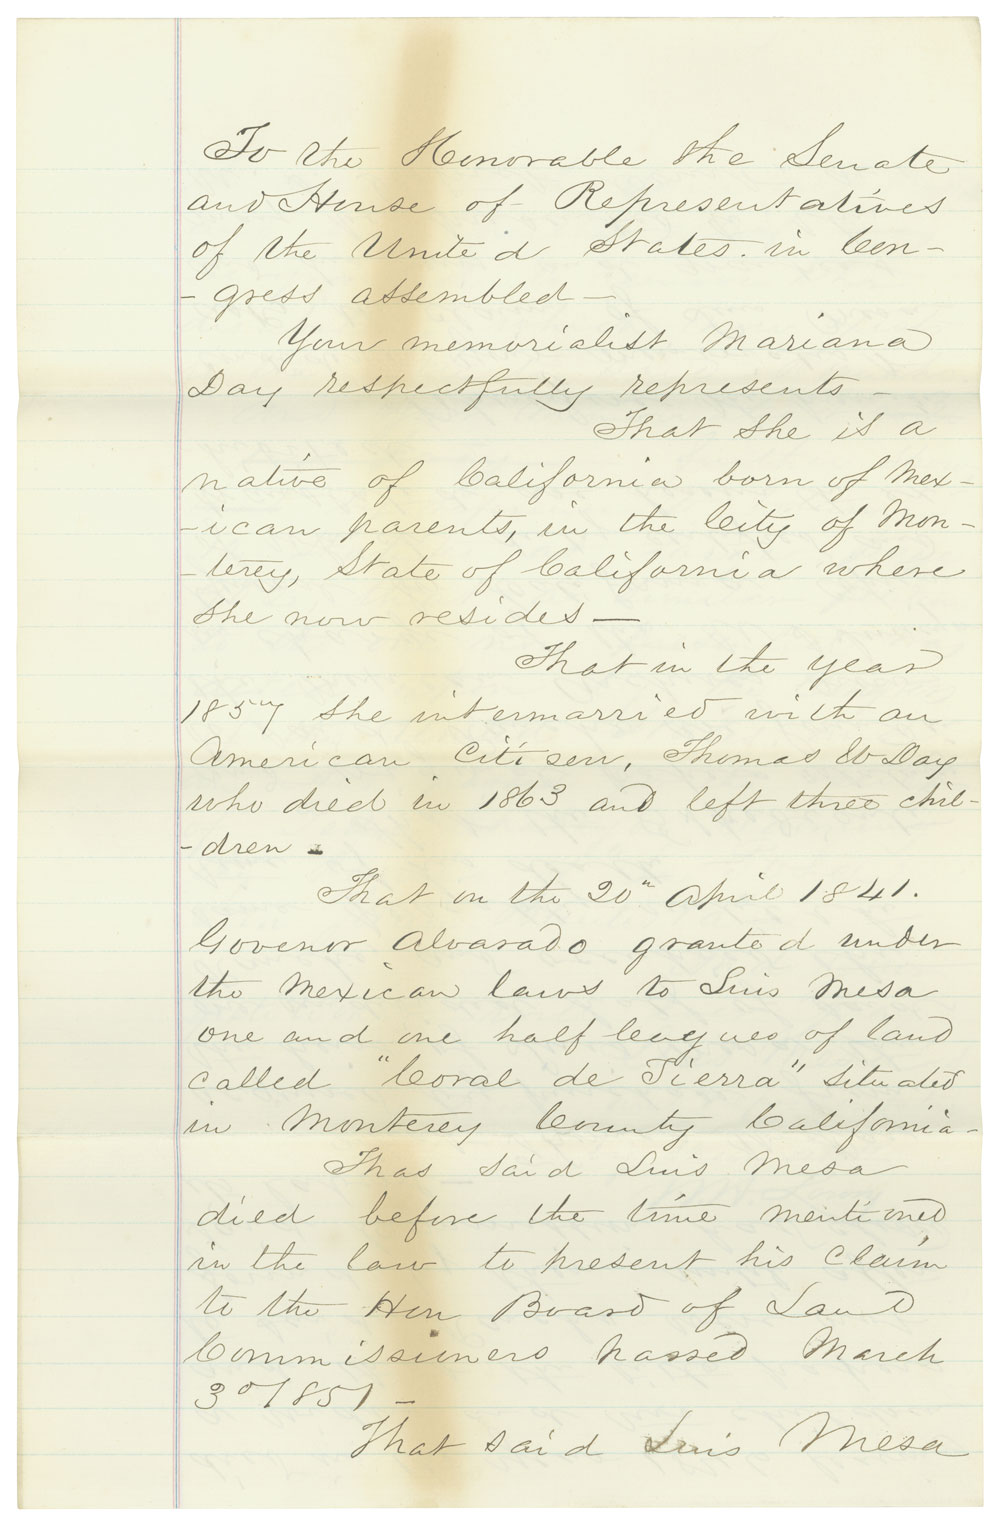 To the Honorable the Senate
and House of Representatives
of the United States. in Con-
-gress assembled -
Your memorialist Mariana
Day respectfully represents -
That she is a
native of California born of Mex-
-ican parents, in the City of Mon-
-terey, State of California where
she now resides -
That in the year
1857 she intermarried with an
American Citizen, Thomas W Day
who died in 1863 and left three chil-
-dren -
That on the 20th April 1841.
Govenor Alvarado granted under
the Mexican laws to Luis Mesa
one and one half leagues of land
called "Coral de Tierra" situated
in Monterey County California -
Thas said Luis Mesa
died before the time mentioned
in the law to present his Claim
to the Hon Board of Land
Commissioners passed March
3d 1851 -
That said Luis Mesa